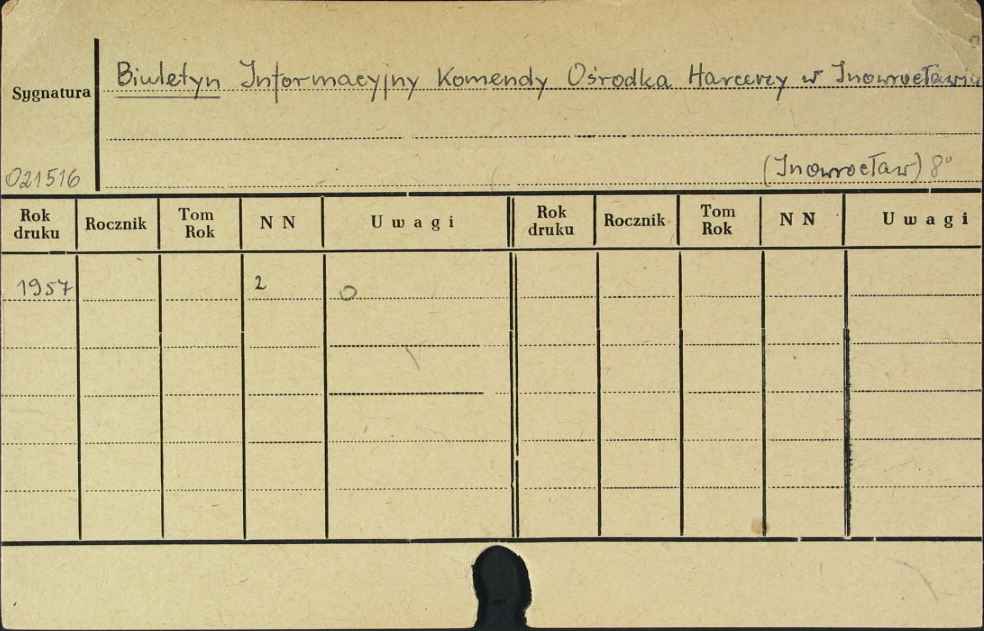 Biuletyn Informacyjny Komendy Ośrodka Harcerzy w Inowrocławiu
Sygnatura
(Inowrocław) 8°
021516
Rok druku Rocznik Tom Rok NN Uwagi Rok druku Rocznik Tom Rok NN Uwagi
1957 2 O